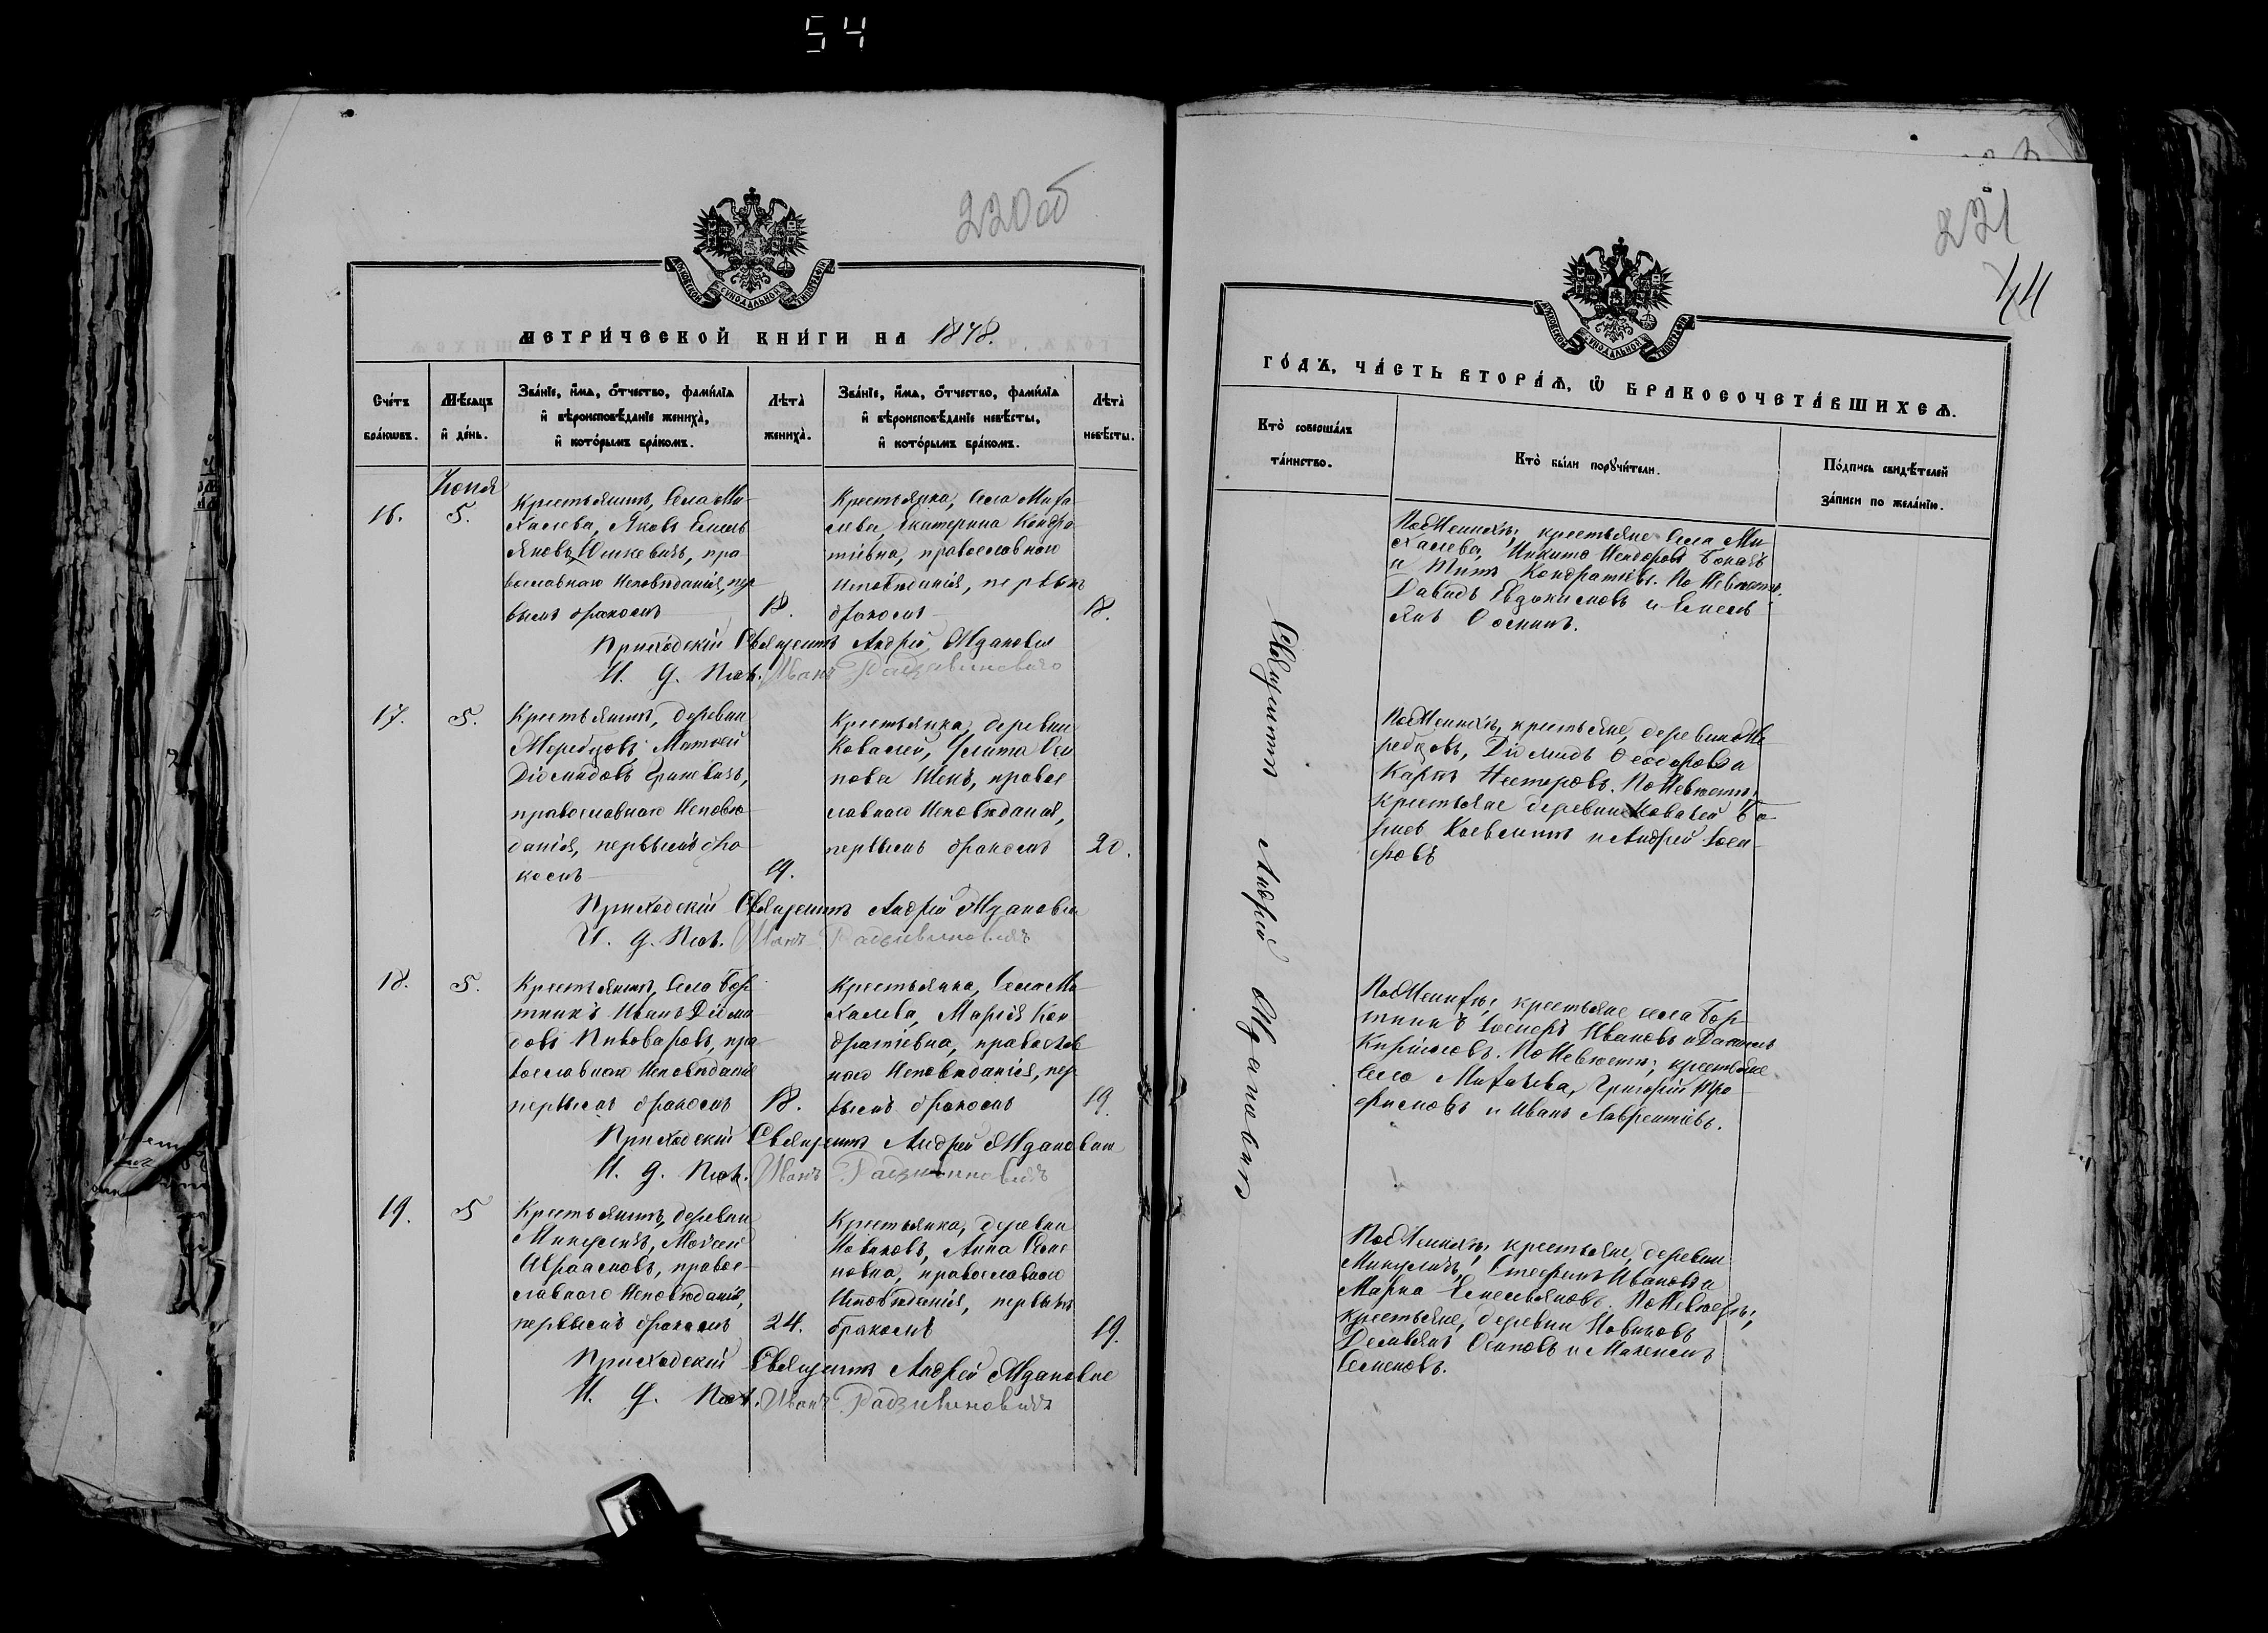 54
220об
МОСКОВСКОЙ СѴНОДАЛЬНОЙ ТИПОГРАФІИ
МЕТРИ́ЧЕСКОЙ КНИ́ГИ НА 1878.
Сче́тъ бра́кωвъ.
Мѣ́сяцъ и҆ де́нь.
Зва́нїе, и҆́мѧ, ѻ҆́тчество, фами́лїѧ
и҆ вѣроисповѣ́данїе жениха̀,
и҆ кото́рымъ бра́комъ.
Лѣта̀ жениха̀.
Зва́нїе, и҆́мѧ, ѻ҆́тчество, фами́лїѧ
и҆ вѣроисповѣ́данїе невѣ́сты,
и҆ кото́рымъ бра́комъ.
Лѣта̀ невѣ́сты.
16.
5.
Крестьянинъ, села Ми-
халева, Яковъ Емель
яновъ Юшкевичъ, пра-
вославнаго Исповѣданія, пер
вымъ бракомъ
18.
Крестьянка, села Миха
лева, Екатерина Кондра
тіевна, православнаго
Исповѣданія, первымъ
бракомъ
18.
Приходскій Священникъ Андрей
И. д. Псал. Иванъ
17.
5.
Крестьянинъ, деревни
Жеребцовъ, Матѳей
Діомидовъ Гриневичъ,
православнаго Исповѣ-
данія, первымъ бра-
комъ
19.
Крестьянка, деревни
Ковалей, Улита Оси
пова Шенъ, правос
лавнаго Исповѣданія,
первымъ бракомъ
20.
Приходскій Священникъ Андрей
И. д. Псал. Иванъ
18.
5.
Крестьянинъ, села Бор
тникъ Иванъ Діоми
довъ Пивоваровъ, пра
вославнаго Исповѣданія
первымъ бракомъ
18.
Крестьянка, села Ми
халева, Марія Кон
дратіевна, православ
наго Исповѣданія, пер
вымъ бракомъ
19.
Приходскій Священникъ Андрей
И. д. Псал. Иванъ
19.
5
Крестьянинъ, деревни
Микуличъ, Моѵсей
Авраамовъ, правос-
лавнаго Исповѣданія,
первымъ бракомъ
24.
Крестьянка, деревни
Новиковъ, Анна Семе
новна, православнаго
Исповѣданія, первымъ
бракомъ
19.
Приходскій Священникъ Андрей
И. д. Псал. Иванъ
221
44
МОСКОВСКОЙ СѴНОДАЛЬНОЙ ТИПОГРАФІИ
ГО́ДЪ, ЧА́СТЬ ВТОРА́Ѧ, Ѡ҆ БРАКОСОЧЕТА́ВШИХСѦ.
Кто̀ соверша́лъ
та́инство.
Кто̀ бы́ли порꙋчи́тели.
По́дпись свидѣ́телей
за́писи по жела́нїю.
Священникъ Андрей
По Женихѣ, крестьяне села Ми
халева, Никита
и Титъ Кондратіевъ. По Невѣстѣ,
Давидъ Евдокимовъ и Емель
янъ Осминъ.
По Женихѣ, крестьяне, деревни Же
ребцовъ, Діомидъ Ѳеодоровъ и
Карпъ Нестеровъ. По Невѣстѣ,
крестьяне деревни Ковалей
и Андрей Іоси
фовъ
По Женихѣ, крестьяне села Бор
тникъ Іосифъ Ивановъ и Даніилъ
Кириловъ. По Невѣстѣ, крестьяне
села Михалева, Григорій Тро
фимовъ и Иванъ Лаврентіевъ.
По Женихѣ, крестьяне, деревни
Микуличъ, Стефанъ Ивановъ и
Марко Емельяновъ. По Невѣстѣ,
крестьяне, деревни Новиковъ
Демьянъ Осиповъ и Максимъ
Семеновъ.